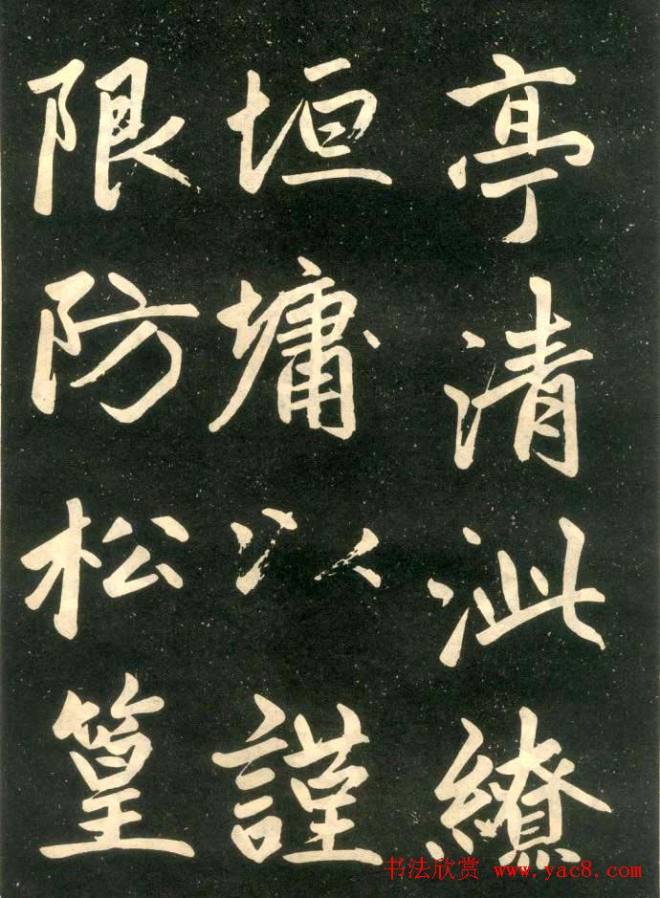 亭清泚缭
垣墉以謹
限防松篁
书法欣赏 www.yac8.com